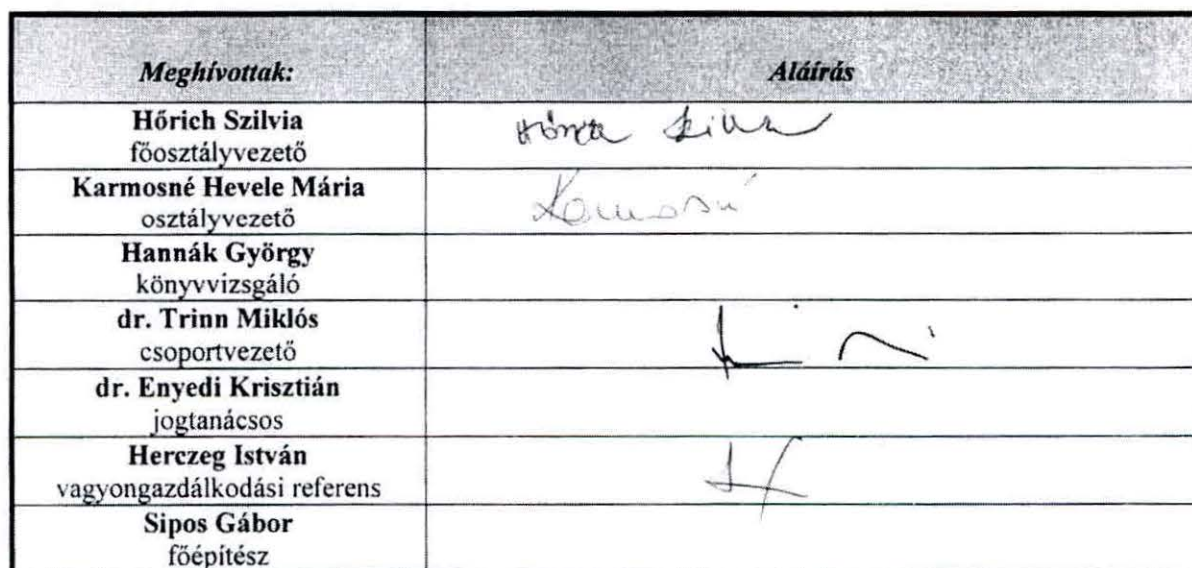 Meghívottak: Aláírás
Hőrich Szilvia
főosztályvezető
Karmosné Hevele Mária
osztályvezető
Karmosné
Hannák György
könyvvizsgáló
dr. Trinn Miklós
csoportvezető
dr. Enyedi Krisztián
jogtanácsos
Herczeg István
vagyongazdálkodási referens
Sipos Gábor
főépítész